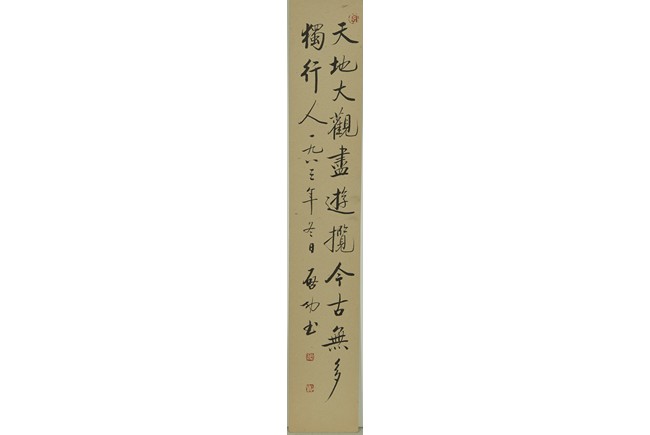 天地大觀盡遊攬今古無多
獨行人一九八三年冬日啟功書